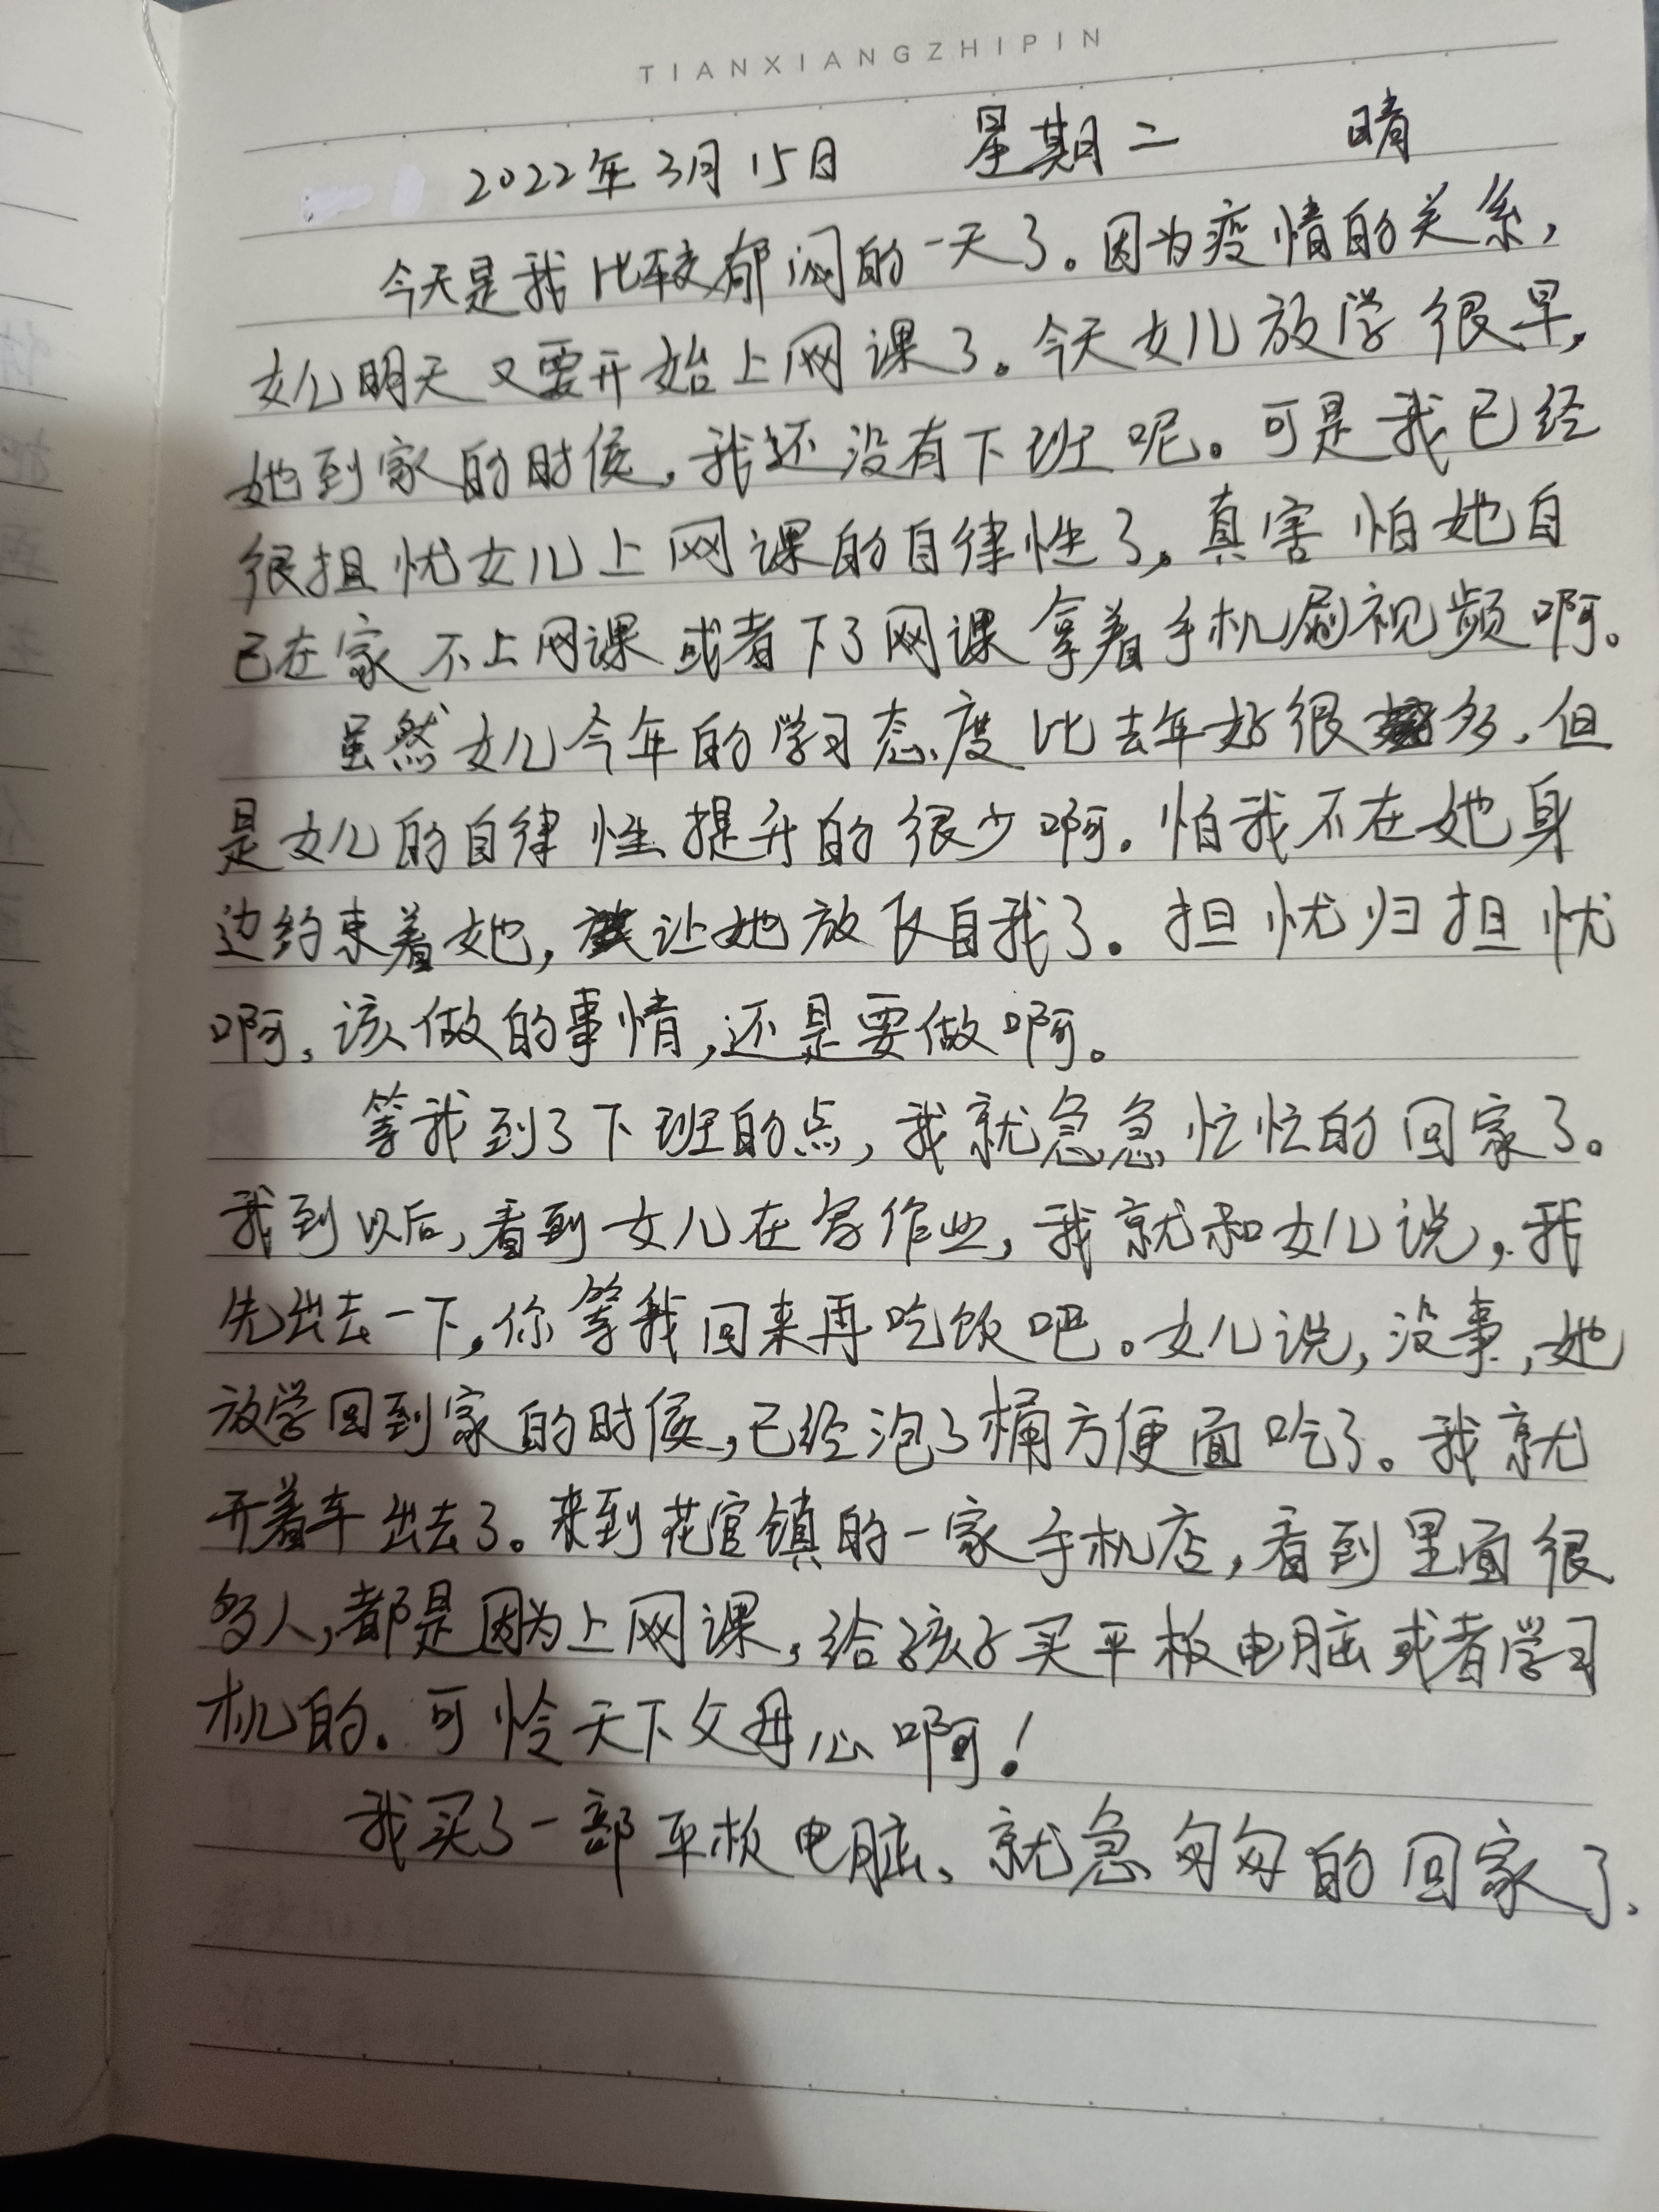 TIANXIANGZHIPIN
2022年3月15日 星期二 晴
今天是我比较郁闷的一天了。因为疫情的关系,
女儿明天又要开始上网课了。今天女儿放学很早,
她到家的时候,我还没有下班呢。可是我已经
很担忧女儿上网课的自律性了,真害怕她自
己在家不上网课或者下了网课拿着手机刷视频啊。
虽然女儿今年的学习态度比去年好很多,但
是女儿的自律性提升的很少啊。怕我不在她身
边约束着她,让她放飞自我了。担忧归担忧
啊,该做的事情,还是要做啊。
等我到了下班的点,我就急急忙忙的回家了。
我到以后,看到女儿在写作业,我就和女儿说,我
先出去一下,你等我回来再吃饭吧。女儿说,没事,她
放学回到家的时候,已经泡了桶方便面吃了。我就
开着车出去了。来到花官镇的一家手机店,看到里面很
多人,都是因为上网课,给孩子买平板电脑或者学习
机的。可怜天下父母心啊!
我买了一部平板电脑、就急匆匆的回家了、